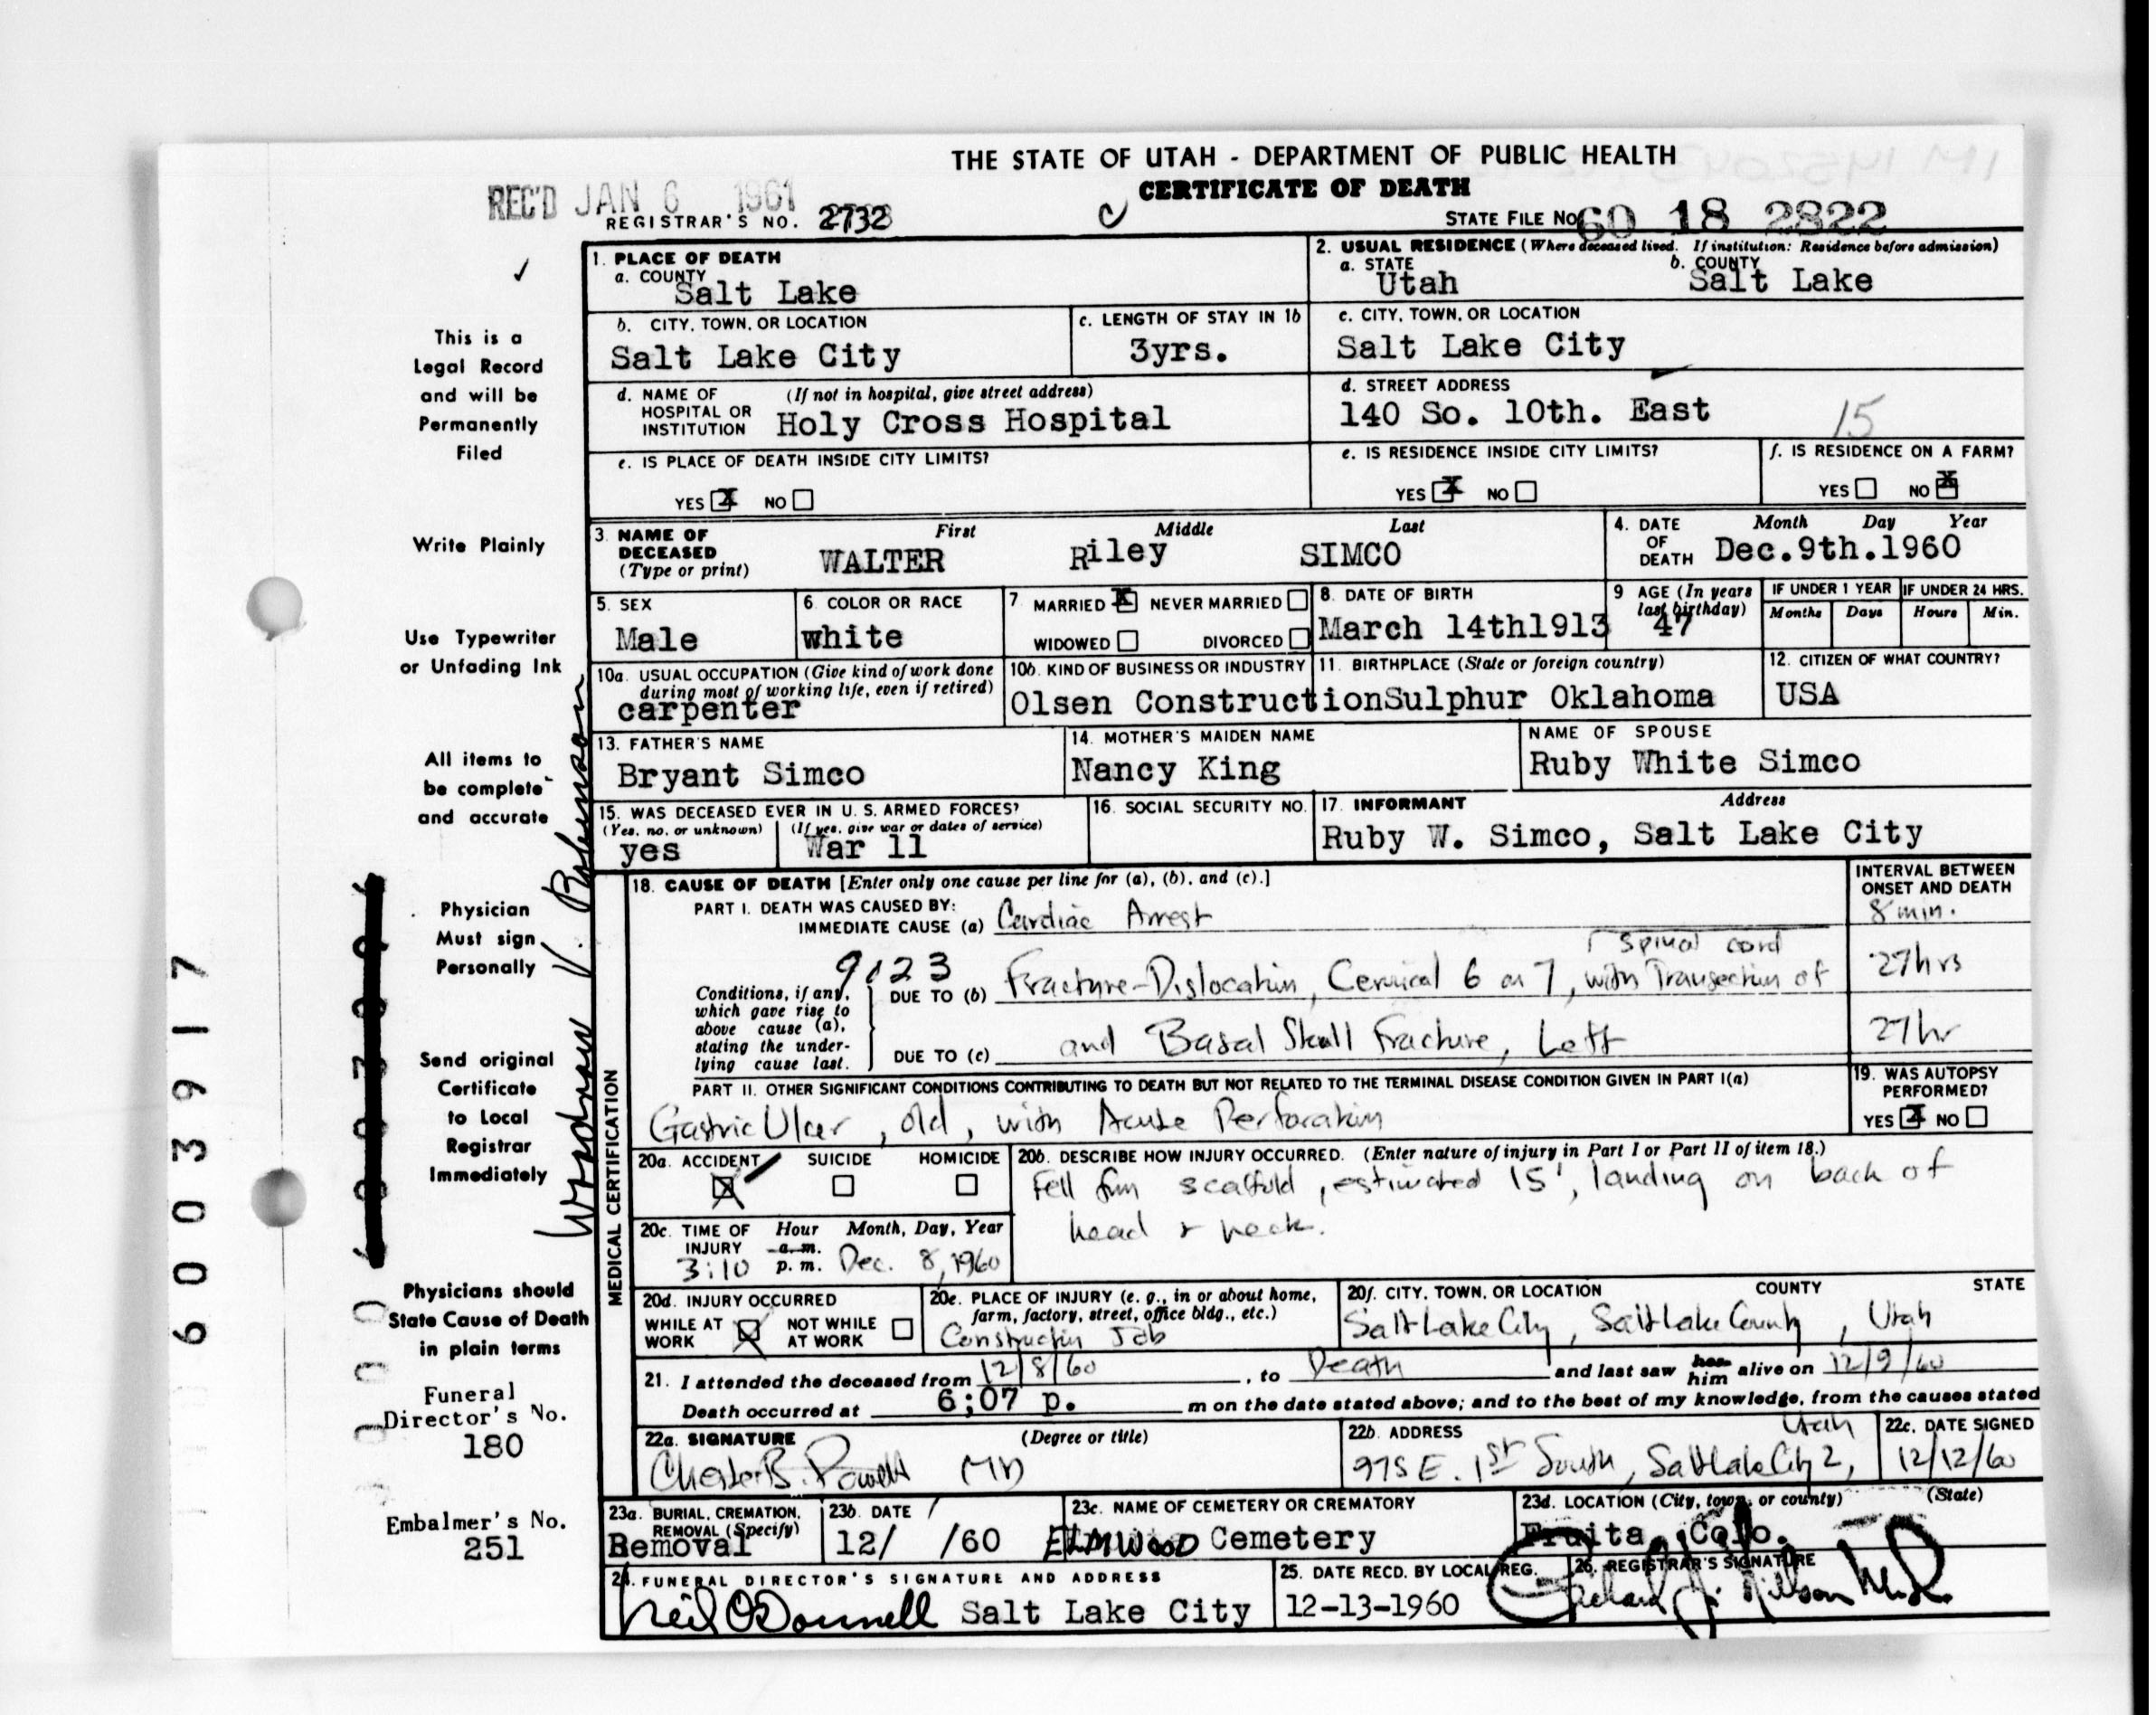 THE STATE OF UTAH - DEPARTMENT OF PUBLIC HEALTH
CERTIFICATE OF DEATH
REC'D JAN 6 1961
REGISTRAR'S NO. 2732
STATE FILE No. 60 18 2822
1. PLACE OF DEATH
a. COUNTY
Salt Lake
2. USUAL RESIDENCE (Where deceased lived. If institution: Residence before admission)
a. STATE b. COUNTY
Utah Salt Lake
b. CITY, TOWN, OR LOCATION
Salt Lake City
c. LENGTH OF STAY IN 1b
3yrs.
c. CITY, TOWN, OR LOCATION
Salt Lake City
d. NAME OF HOSPITAL OR INSTITUTION (If not in hospital, give street address)
Holy Cross Hospital
d. STREET ADDRESS
140 So. 10th. East
15
e. IS PLACE OF DEATH INSIDE CITY LIMITS?
YES X NO
e. IS RESIDENCE INSIDE CITY LIMITS?
YES X NO
f. IS RESIDENCE ON A FARM?
YES NO X
3. NAME OF DECEASED (Type or print)
First Middle Last
WALTER Riley SIMCO
4. DATE OF DEATH Month Day Year
Dec.9th.1960
5. SEX
Male
6. COLOR OR RACE
white
7. MARRIED X NEVER MARRIED
WIDOWED DIVORCED
8. DATE OF BIRTH
March 14th1913
9 AGE (In years last birthday)
47
IF UNDER 1 YEAR IF UNDER 24 HRS.
Months Days Hours Min.
10a. USUAL OCCUPATION (Give kind of work done during most of working life, even if retired)
carpenter
10b. KIND OF BUSINESS OR INDUSTRY
Olsen Construction
11. BIRTHPLACE (State or foreign country)
Sulphur Oklahoma
12. CITIZEN OF WHAT COUNTRY?
USA
13. FATHER'S NAME
Bryant Simco
14. MOTHER'S MAIDEN NAME
Nancy King
NAME OF SPOUSE
Ruby White Simco
15. WAS DECEASED EVER IN U. S. ARMED FORCES?
(Yes, no, or unknown) (If yes, give war or dates of service)
yes War 11
16. SOCIAL SECURITY NO.
17. INFORMANT Address
Ruby W. Simco, Salt Lake City
MEDICAL CERTIFICATION
18. CAUSE OF DEATH [Enter only one cause per line for (a), (b), and (c).]
INTERVAL BETWEEN ONSET AND DEATH
PART I. DEATH WAS CAUSED BY:
IMMEDIATE CAUSE (a) Cardiac Arrest
8 min.
9123
Conditions, if any, which gave rise to above cause (a), stating the underlying cause last.
spinal cord
DUE TO (b) Fracture-Dislocation, Cervical 6 on 7, with Transection of
27hrs
DUE TO (c) and Basal Skull Fracture, Left
27hr
PART II. OTHER SIGNIFICANT CONDITIONS CONTRIBUTING TO DEATH BUT NOT RELATED TO THE TERMINAL DISEASE CONDITION GIVEN IN PART I(a)
Gastric Ulcer, old, with Acute Perforation
19. WAS AUTOPSY PERFORMED?
YES X NO
20a. ACCIDENT X SUICIDE HOMICIDE
20b. DESCRIBE HOW INJURY OCCURRED. (Enter nature of injury in Part I or Part II of item 18.)
Fell from scaffold, estimated 15', landing on back of
head & neck.
20c. TIME OF INJURY Hour Month, Day, Year
a. m.
3:10 p. m. Dec. 8, 1960
20d. INJURY OCCURRED
WHILE AT WORK X NOT WHILE AT WORK
20e. PLACE OF INJURY (e. g., in or about home, farm, factory, street, office bldg., etc.)
Construction Job
20f. CITY, TOWN, OR LOCATION COUNTY STATE
Salt Lake City, Salt Lake County, Utah
21. I attended the deceased from 12/8/60, to Death and last saw her him alive on 12/9/60
Death occurred at 6;07 p. m on the date stated above; and to the best of my knowledge, from the causes stated
22a. SIGNATURE (Degree or title)
Chester B. Powell MD
22b. ADDRESS
975 E. 1st South, Salt Lake City 2, Utah
22c. DATE SIGNED
12/12/60
23a. BURIAL, CREMATION, REMOVAL (Specify)
Removal
23b. DATE
12/ /60
23c. NAME OF CEMETERY OR CREMATORY
ELMWOOD Cemetery
23d. LOCATION (City, town, or county) (State)
Fruita, Colo.
24. FUNERAL DIRECTOR'S SIGNATURE AND ADDRESS
Neil O'Donnell Salt Lake City
25. DATE RECD. BY LOCAL REG.
12-13-1960
26. REGISTRAR'S SIGNATURE
This is a
Legal Record
and will be
Permanently
Filed
Write Plainly
Use Typewriter
or Unfading Ink
All items to
be complete
and accurate
Physician
Must sign
Personally
Send original
Certificate
to Local
Registrar
Immediately
Physicians should
State Cause of Death
in plain terms
Funeral
Director's No.
180
Embalmer's No.
251
6003917